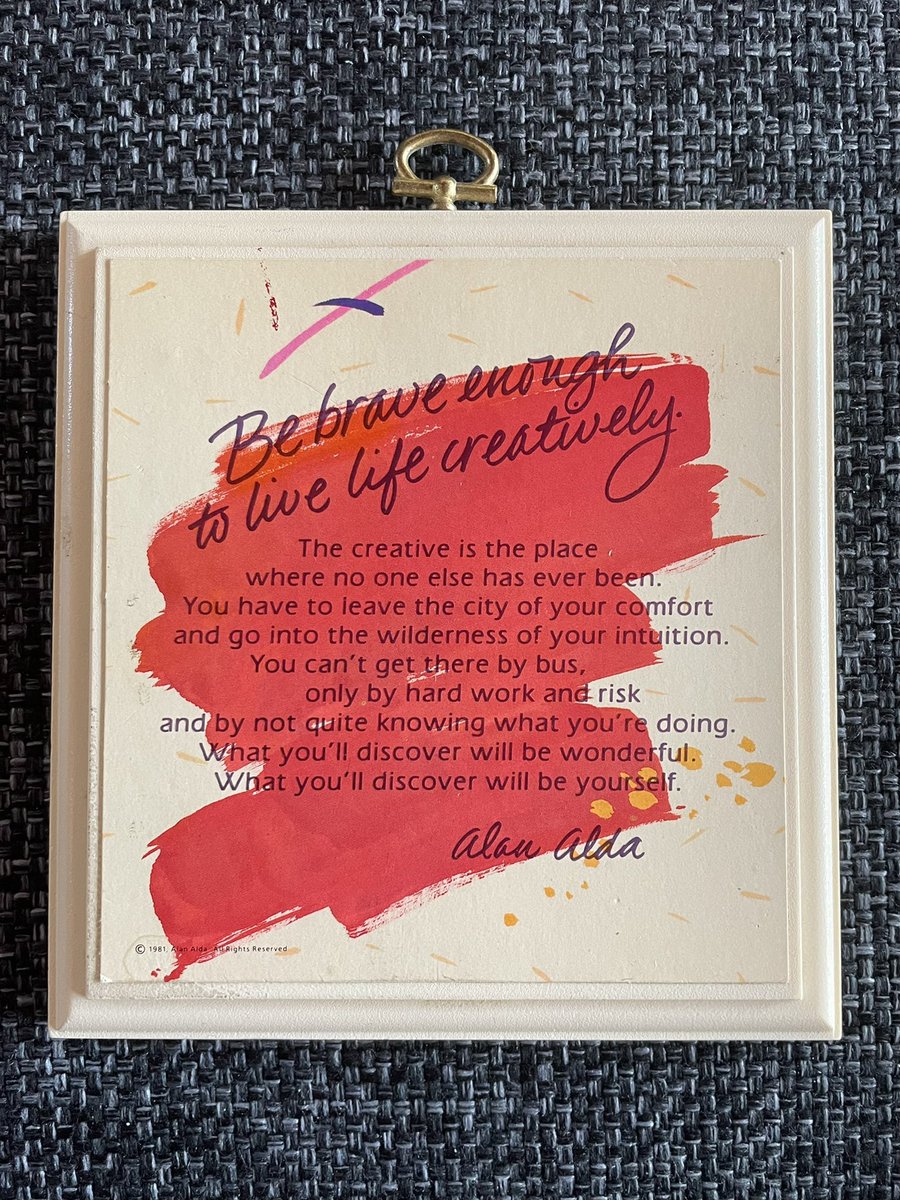 Be brave enough
to live life creatively.
The creative is the place
where no one else has ever been.
You have to leave the city of your comfort
and go into the wilderness of your intuition.
You can't get there by bus,
only by hard work and risk
and by not quite knowing what you're doing.
What you'll discover will be wonderful.
What you'll discover will be yourself.
Alan Alda
© 1981, Alan Alda. All Rights Reserved